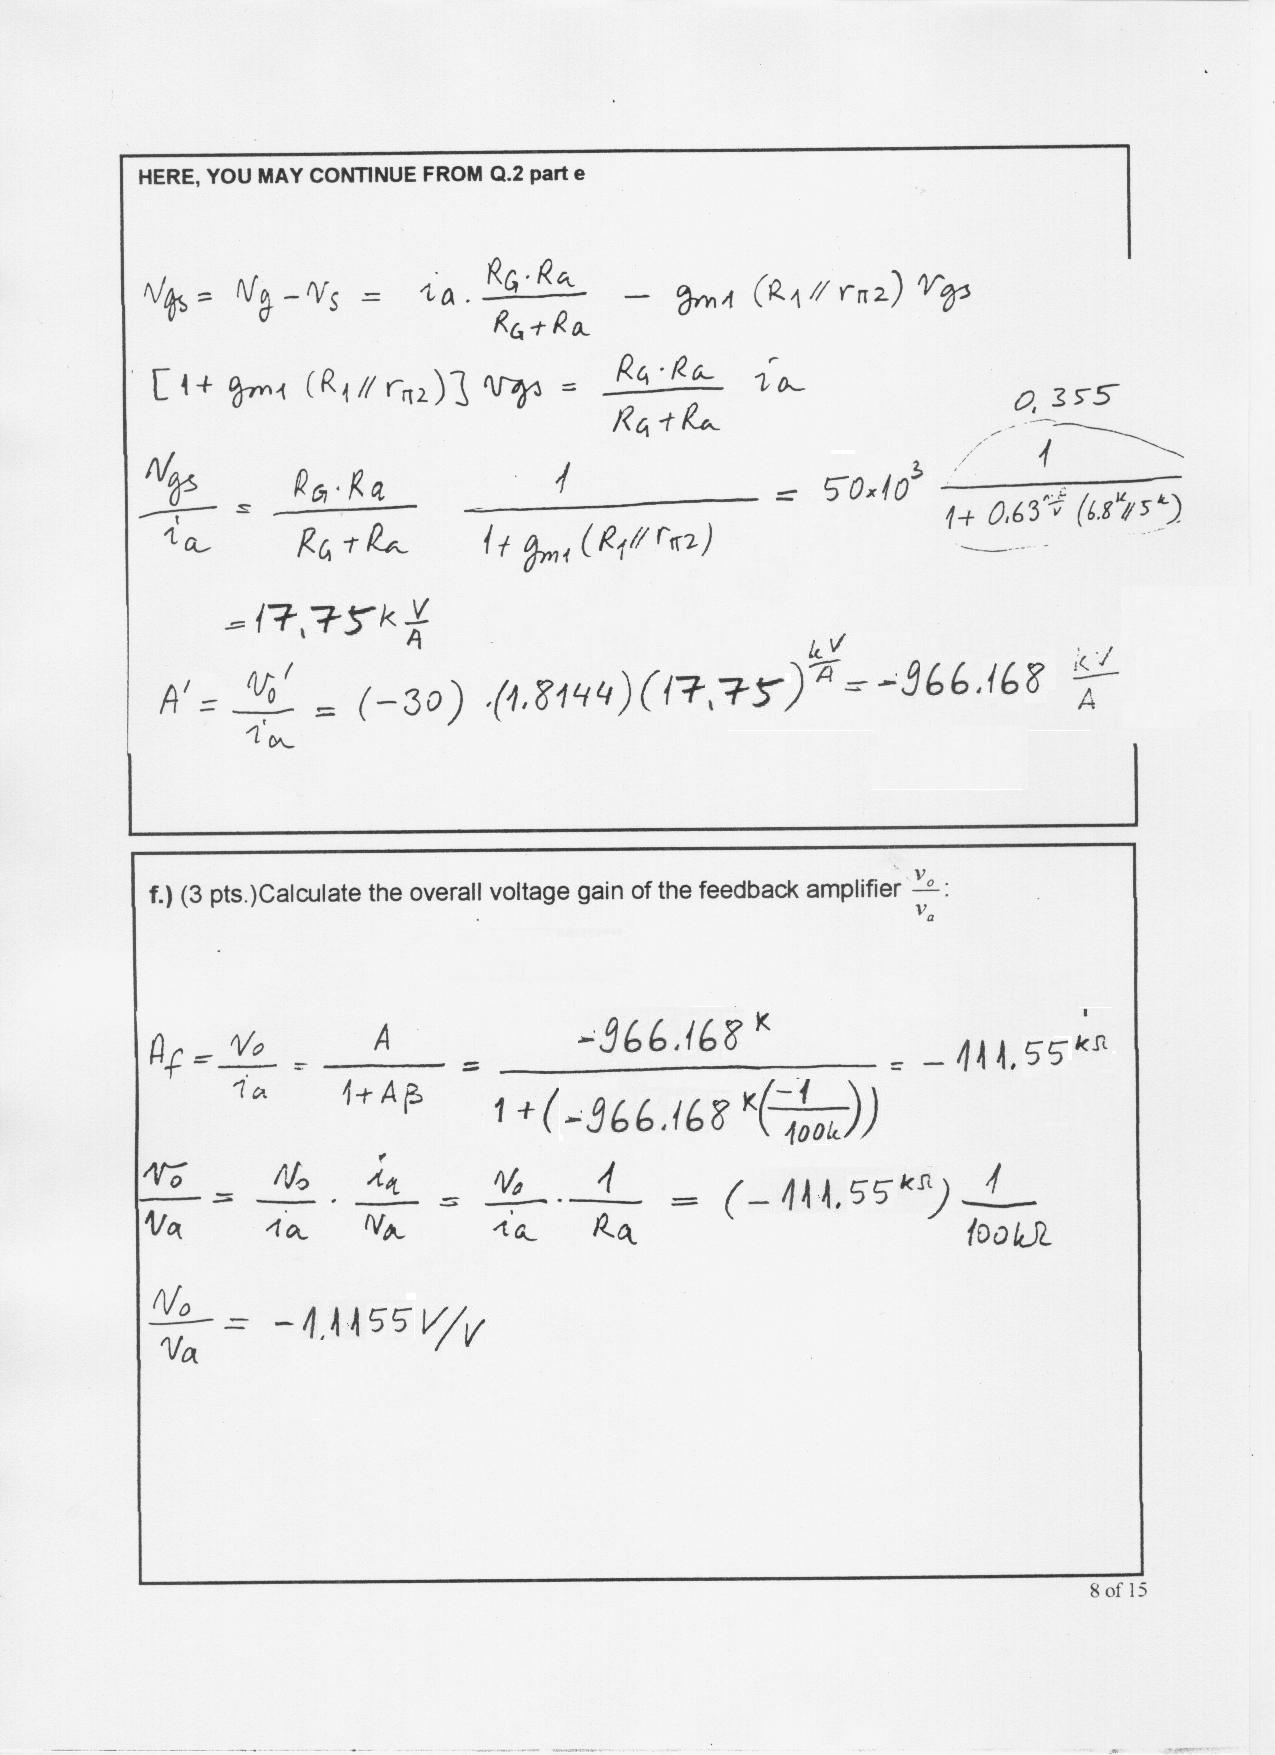 HERE, YOU MAY CONTINUE FROM Q.2 part e
Vgs = Vg - Vs = ia . RG·Ra / RG + Ra - gm1 (R1 // rπ2) Vgs
[1 + gm1 (R1 // rπ2)] Vgs = RG·Ra / RG + Ra ia
0.355
Vgs / ia = RG·Ra / RG + Ra 1 / 1 + gm1 (R1 // rπ2) = 50×10³ 1 / 1 + 0.63 (6.8k // 5k)
= 17.75 k V/A
A' = Vo' / ia = (-30) · (1.8144) (17.75) kV/A = -966.168 kV/A
f.) (3 pts.)Calculate the overall voltage gain of the feedback amplifier vo / va :
Af = Vo / ia = A / 1 + Aβ = -966.168 K / 1 + (-966.168 K (-1 / 100k)) = - 111.55 kΩ
Vo / Va = Vo / ia · ia / Va = Vo / ia · 1 / Ra = (-111.55 kΩ) 1 / 100kΩ
Vo / Va = -1.1155 V/V
8 of 15